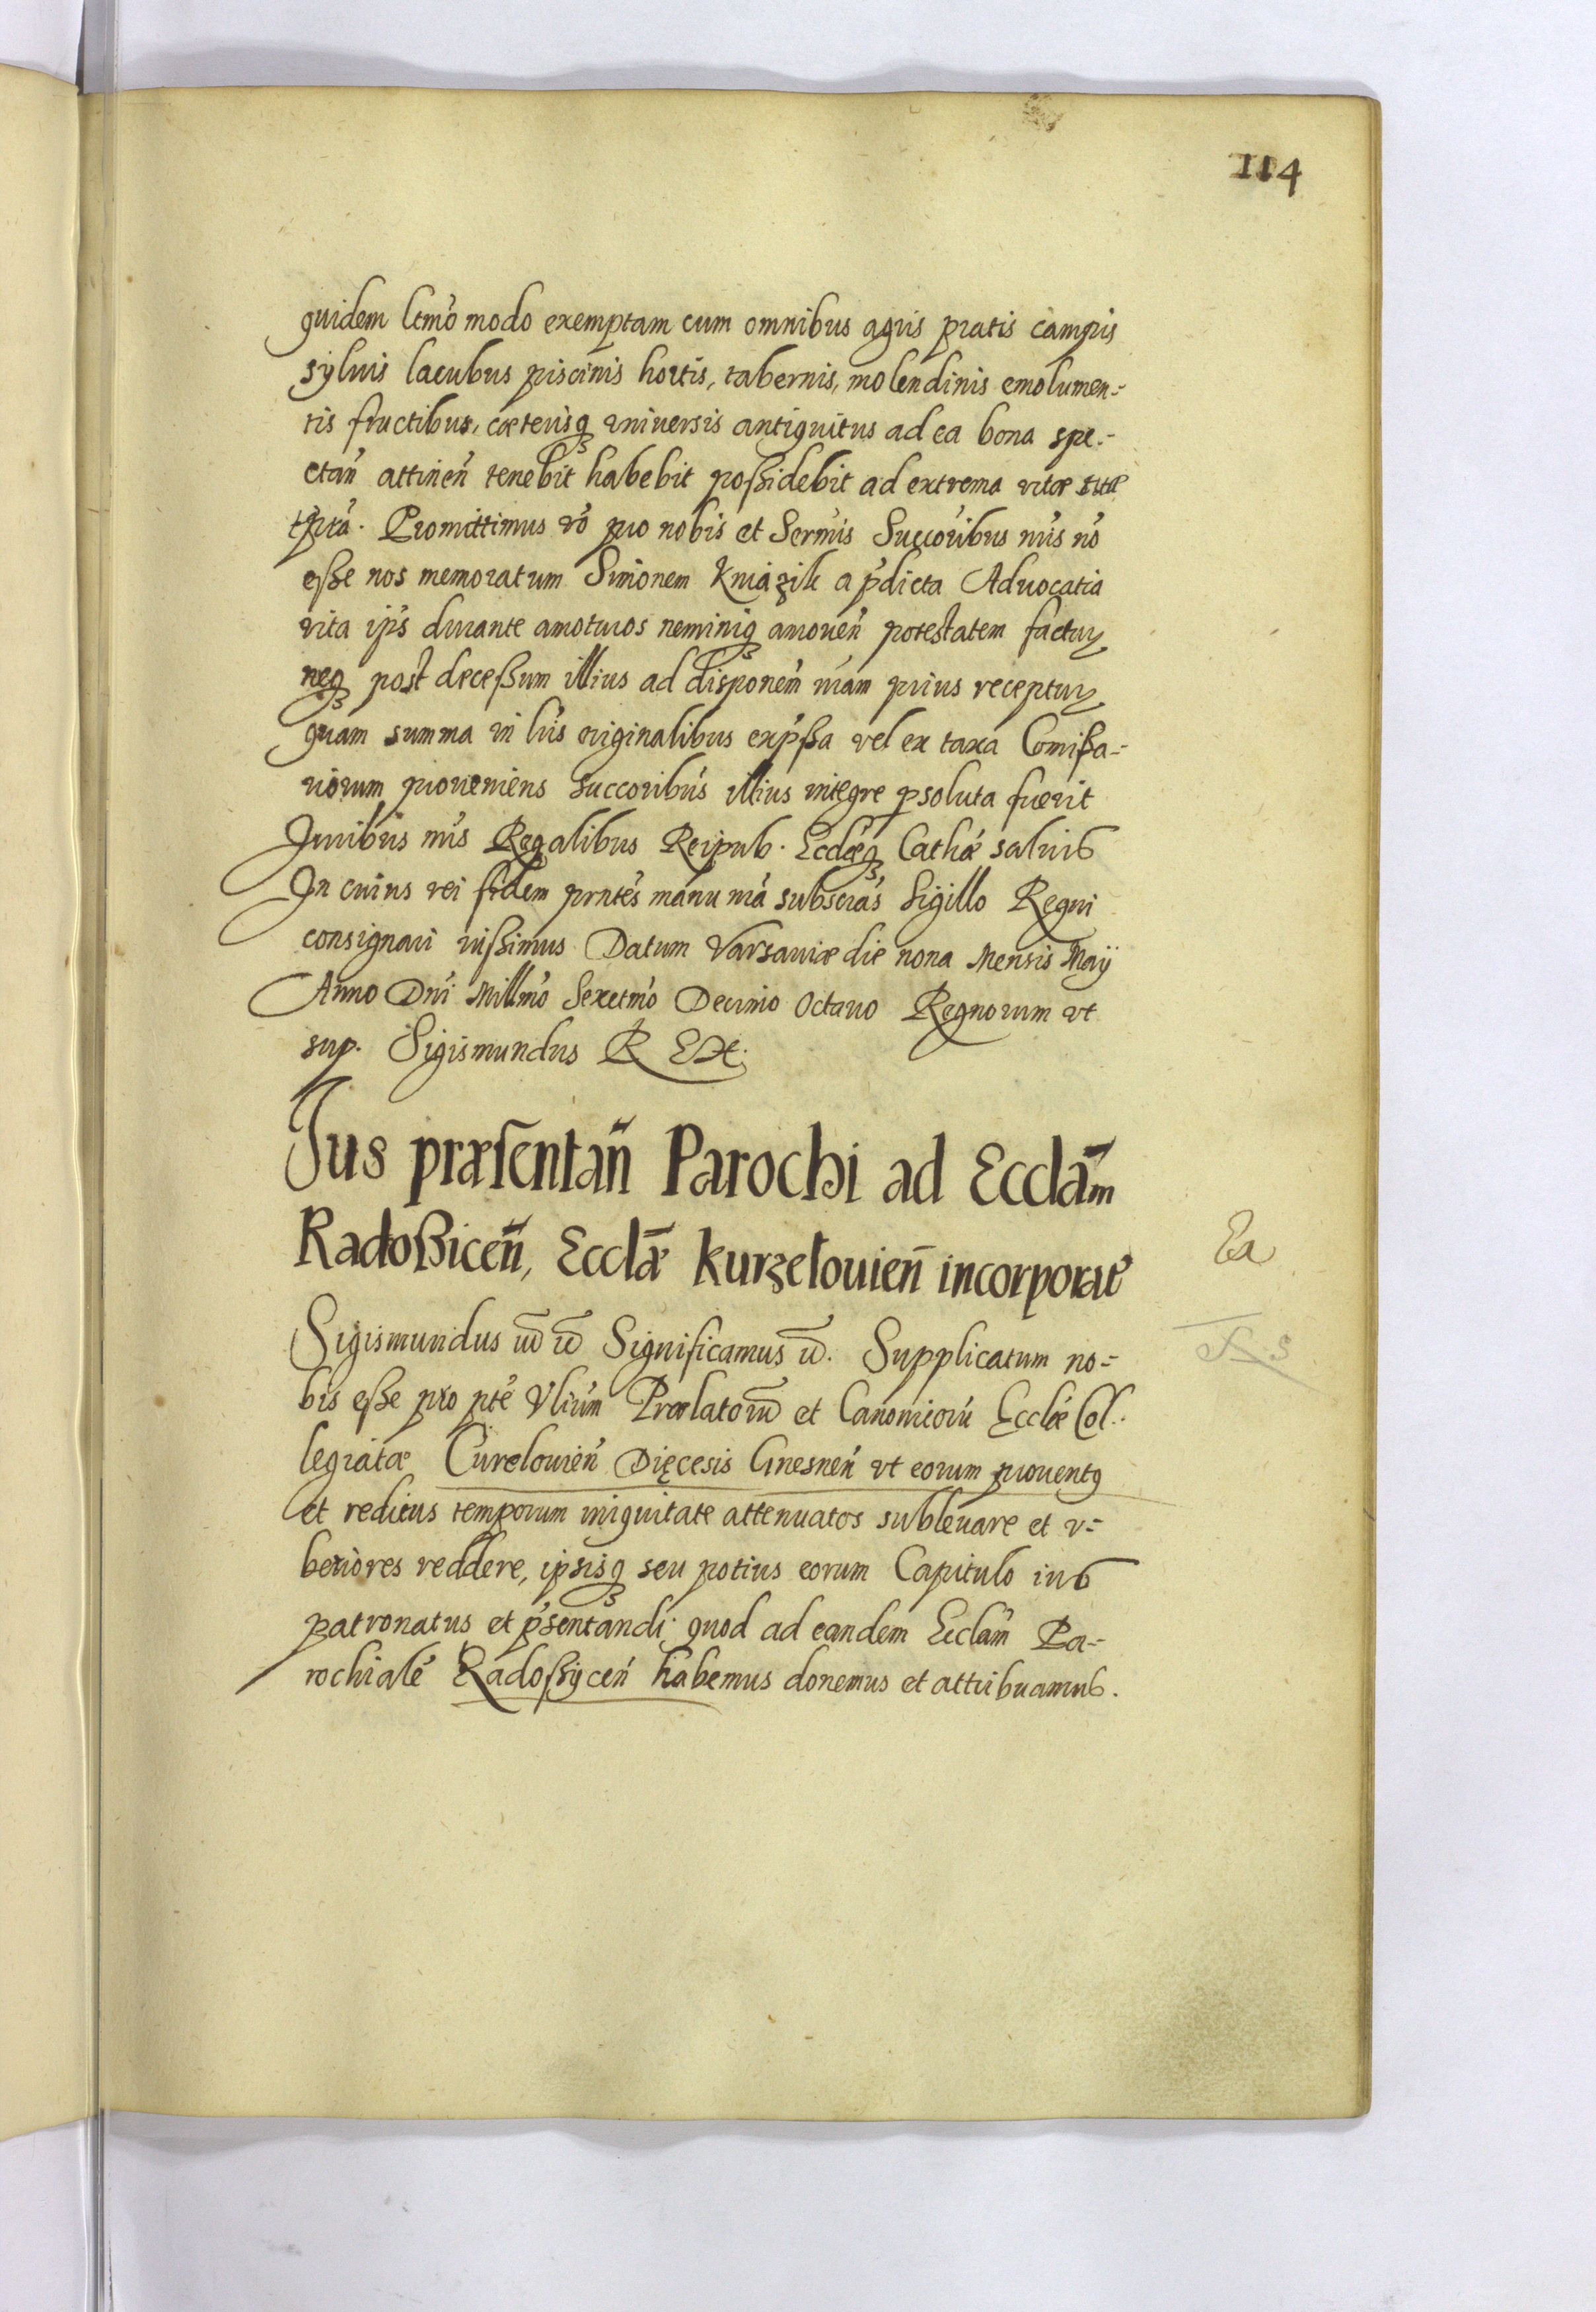 114
quidem ltmo modo exemptam cum omnibus agris pratis campis
syluis lacubus piscinis hortis, tabernis, molendinis emolumen=
tis fructibus, cæterisq̃ vniuersis antiquitus ad ea bona spe=
ctañ attineñ tenebit habebit poßidebit ad extrema vitæ suæ
tp̃ra. Promittimus vo pro nobis et Sermis Succoribus nris no
eße nos memoratum Simonem Kniazik a p̃dicta Aduocatia
vita ip̃s durante amoturos neminiq̃ amoueñ potestatem factur
neq̃ post deceßum illius ad disponem nram prius receptur
quam summa in lris originalibus exp̃ßa vel ex taxa Comißa=
riorum proueniens succoribus illius integre psoluta fuerit
Juribus nris Regalibus Reipub. Ecclæq̃ Cathæ saluis
In cuius rei fidem prntes manu nra subscras Sigillo Regni
consignari iußimus Datum Varsauiæ die nona Mensis Maÿ
Anno Dni Millmo Sexctmo Decimo Octauo Regnorum vt
sup. Sigismundus R EX.
Jus præsentañ Parochi ad Ecclãm
Radoßiceñ, Ecclæ Kurzelouieñ incorporatæ
Ea
Sigismundus Significamus Supplicatum no=
bis eße pro pte Vlium Prælatorū et Canonicorū Ecclæ Col=
legiatæ Curelouieñ Dięcesis Gnesneñ vt eorum prouentq
et reditus temporum iniquitate attenuatos subleuare et v=
beriores reddere, ipsisq̃ seu potius eorum Capitulo ius
patronatus et p̃sentandi quod ad eandem Ecclam Pa=
rochiale Radoßyceñ habemus donemus et attribuamus.